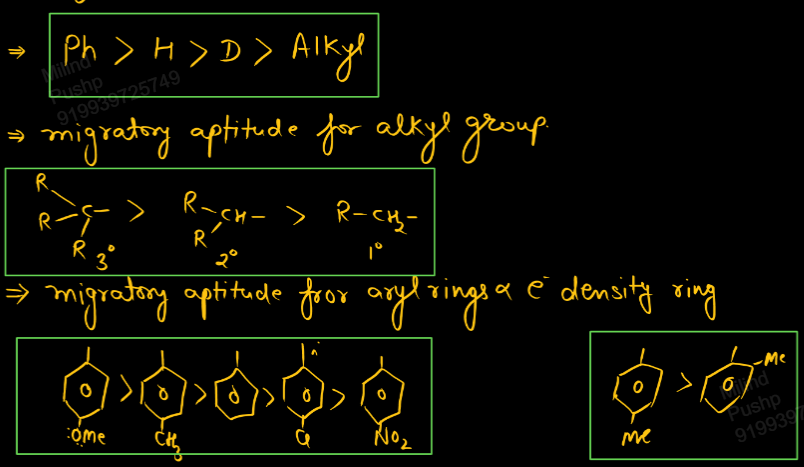 ⇒ Ph > H > D > Alkyl
Milind
Pushp
919939725749
⇒ migratory aptitude for alkyl group.
R R R C– 3° > R R CH– 2° > R–CH2– 1°
⇒ migratory aptitude fror aryl rings ∝ e⁻ density ring
:OMe > CH3 > > Cl > NO2
Me > –Me
Milind
Pushp
91993972